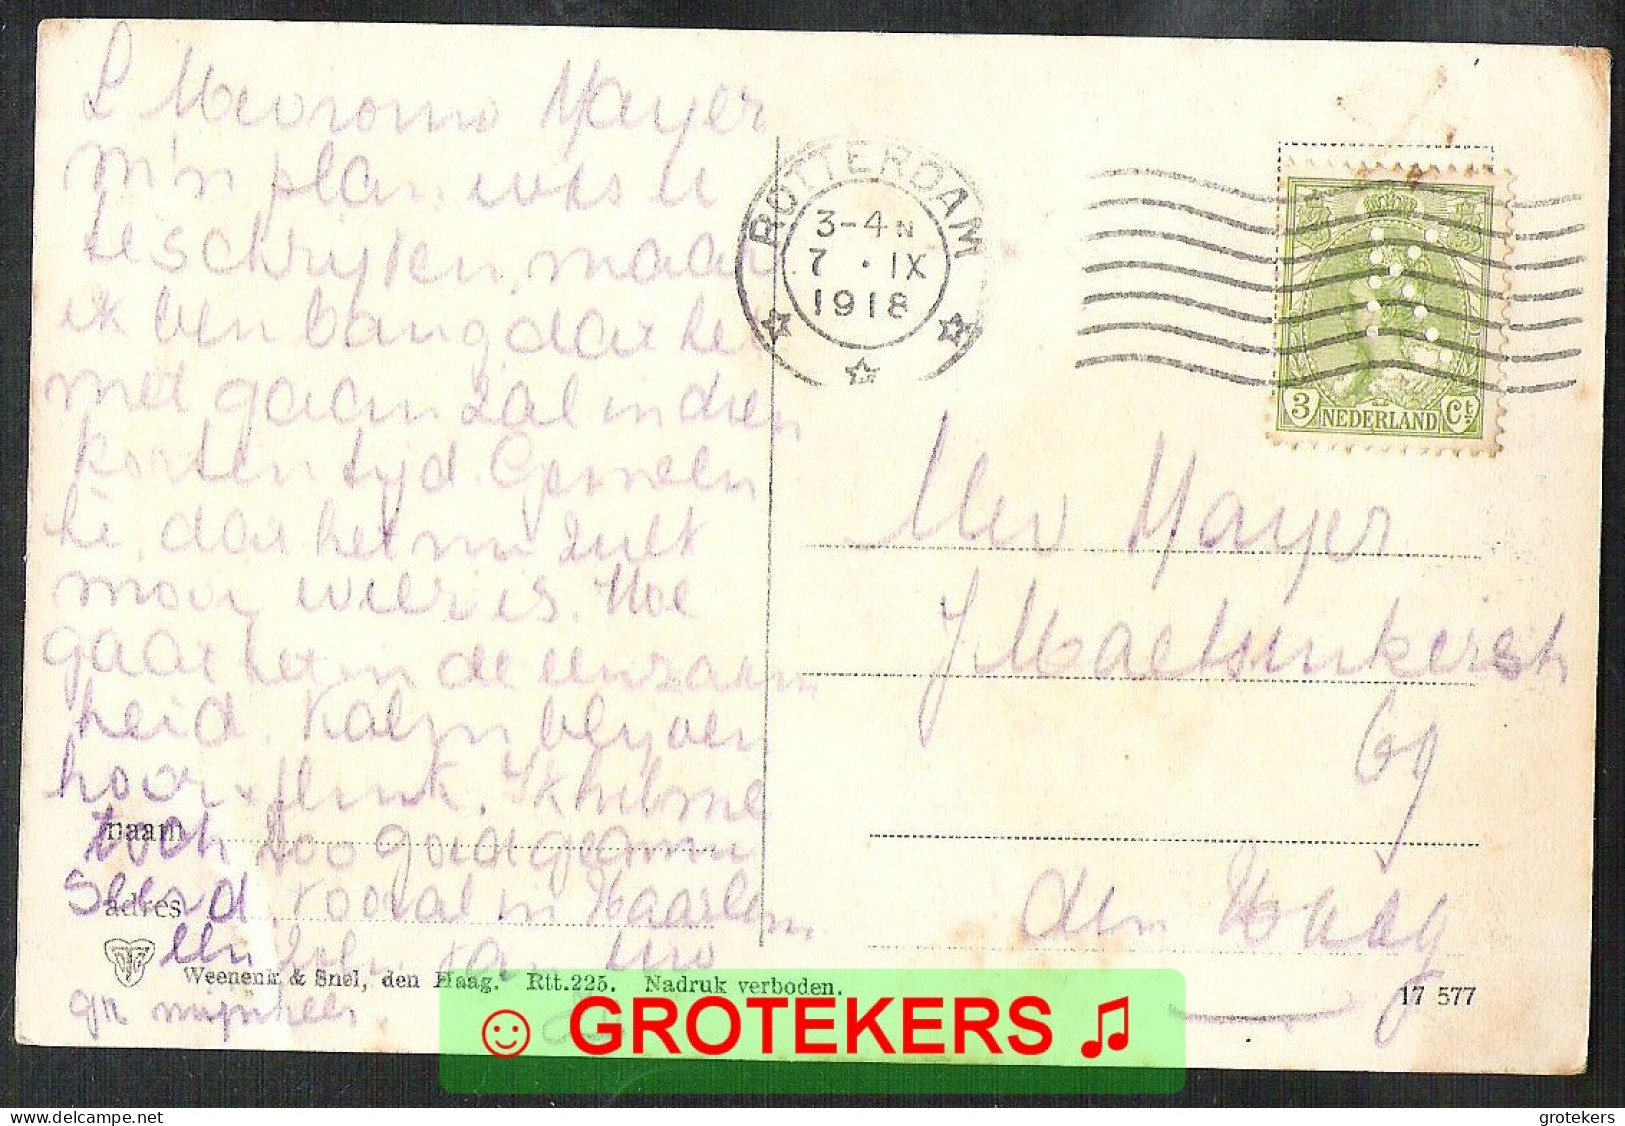 L Mevrouw Mayer
m'n plan was u
te schrijven, maar
ik ben bang dat het
niet gaan zal in dien
korten tijd. Gemeen
hè, dat het nu zulk
mooi weer is. Hoe
gaat het in de eenzaam
heid. Kalm blijven
hoor & flink. Ik heb me
toch zoo goed geamu
seerd, vooral in Haarlem
een
gr mijnheer.
naam
adres
Weenenk & Snel, den Haag. Rtt.225. Nadruk verboden.
ROTTERDAM
3-4 N
7 · IX
1918
3 NEDERLAND Ct
Mev Mayer
J Maetsuikerstr
69
den Haag
17 577
☺ GROTEKERS ♫
delcampe.net
grotekers